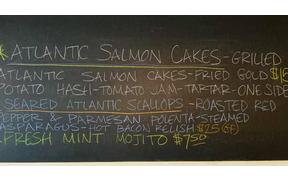 * ATLANTIC SALMON CAKES-GRILLED
ATLANTIC SALMON CAKES-FRIED GOLD
POTATO HASH-TOMATO JAM-TARTAR-ONE SIDE
SEARED ATLANTIC SCALLOPS-ROASTED RED
PEPPER & PARMESAN POLENTA-STEAMED
ASPARAGUS-HOT BACON RELISH $25 (GF)
FRESH MINT MOJITO $7.50